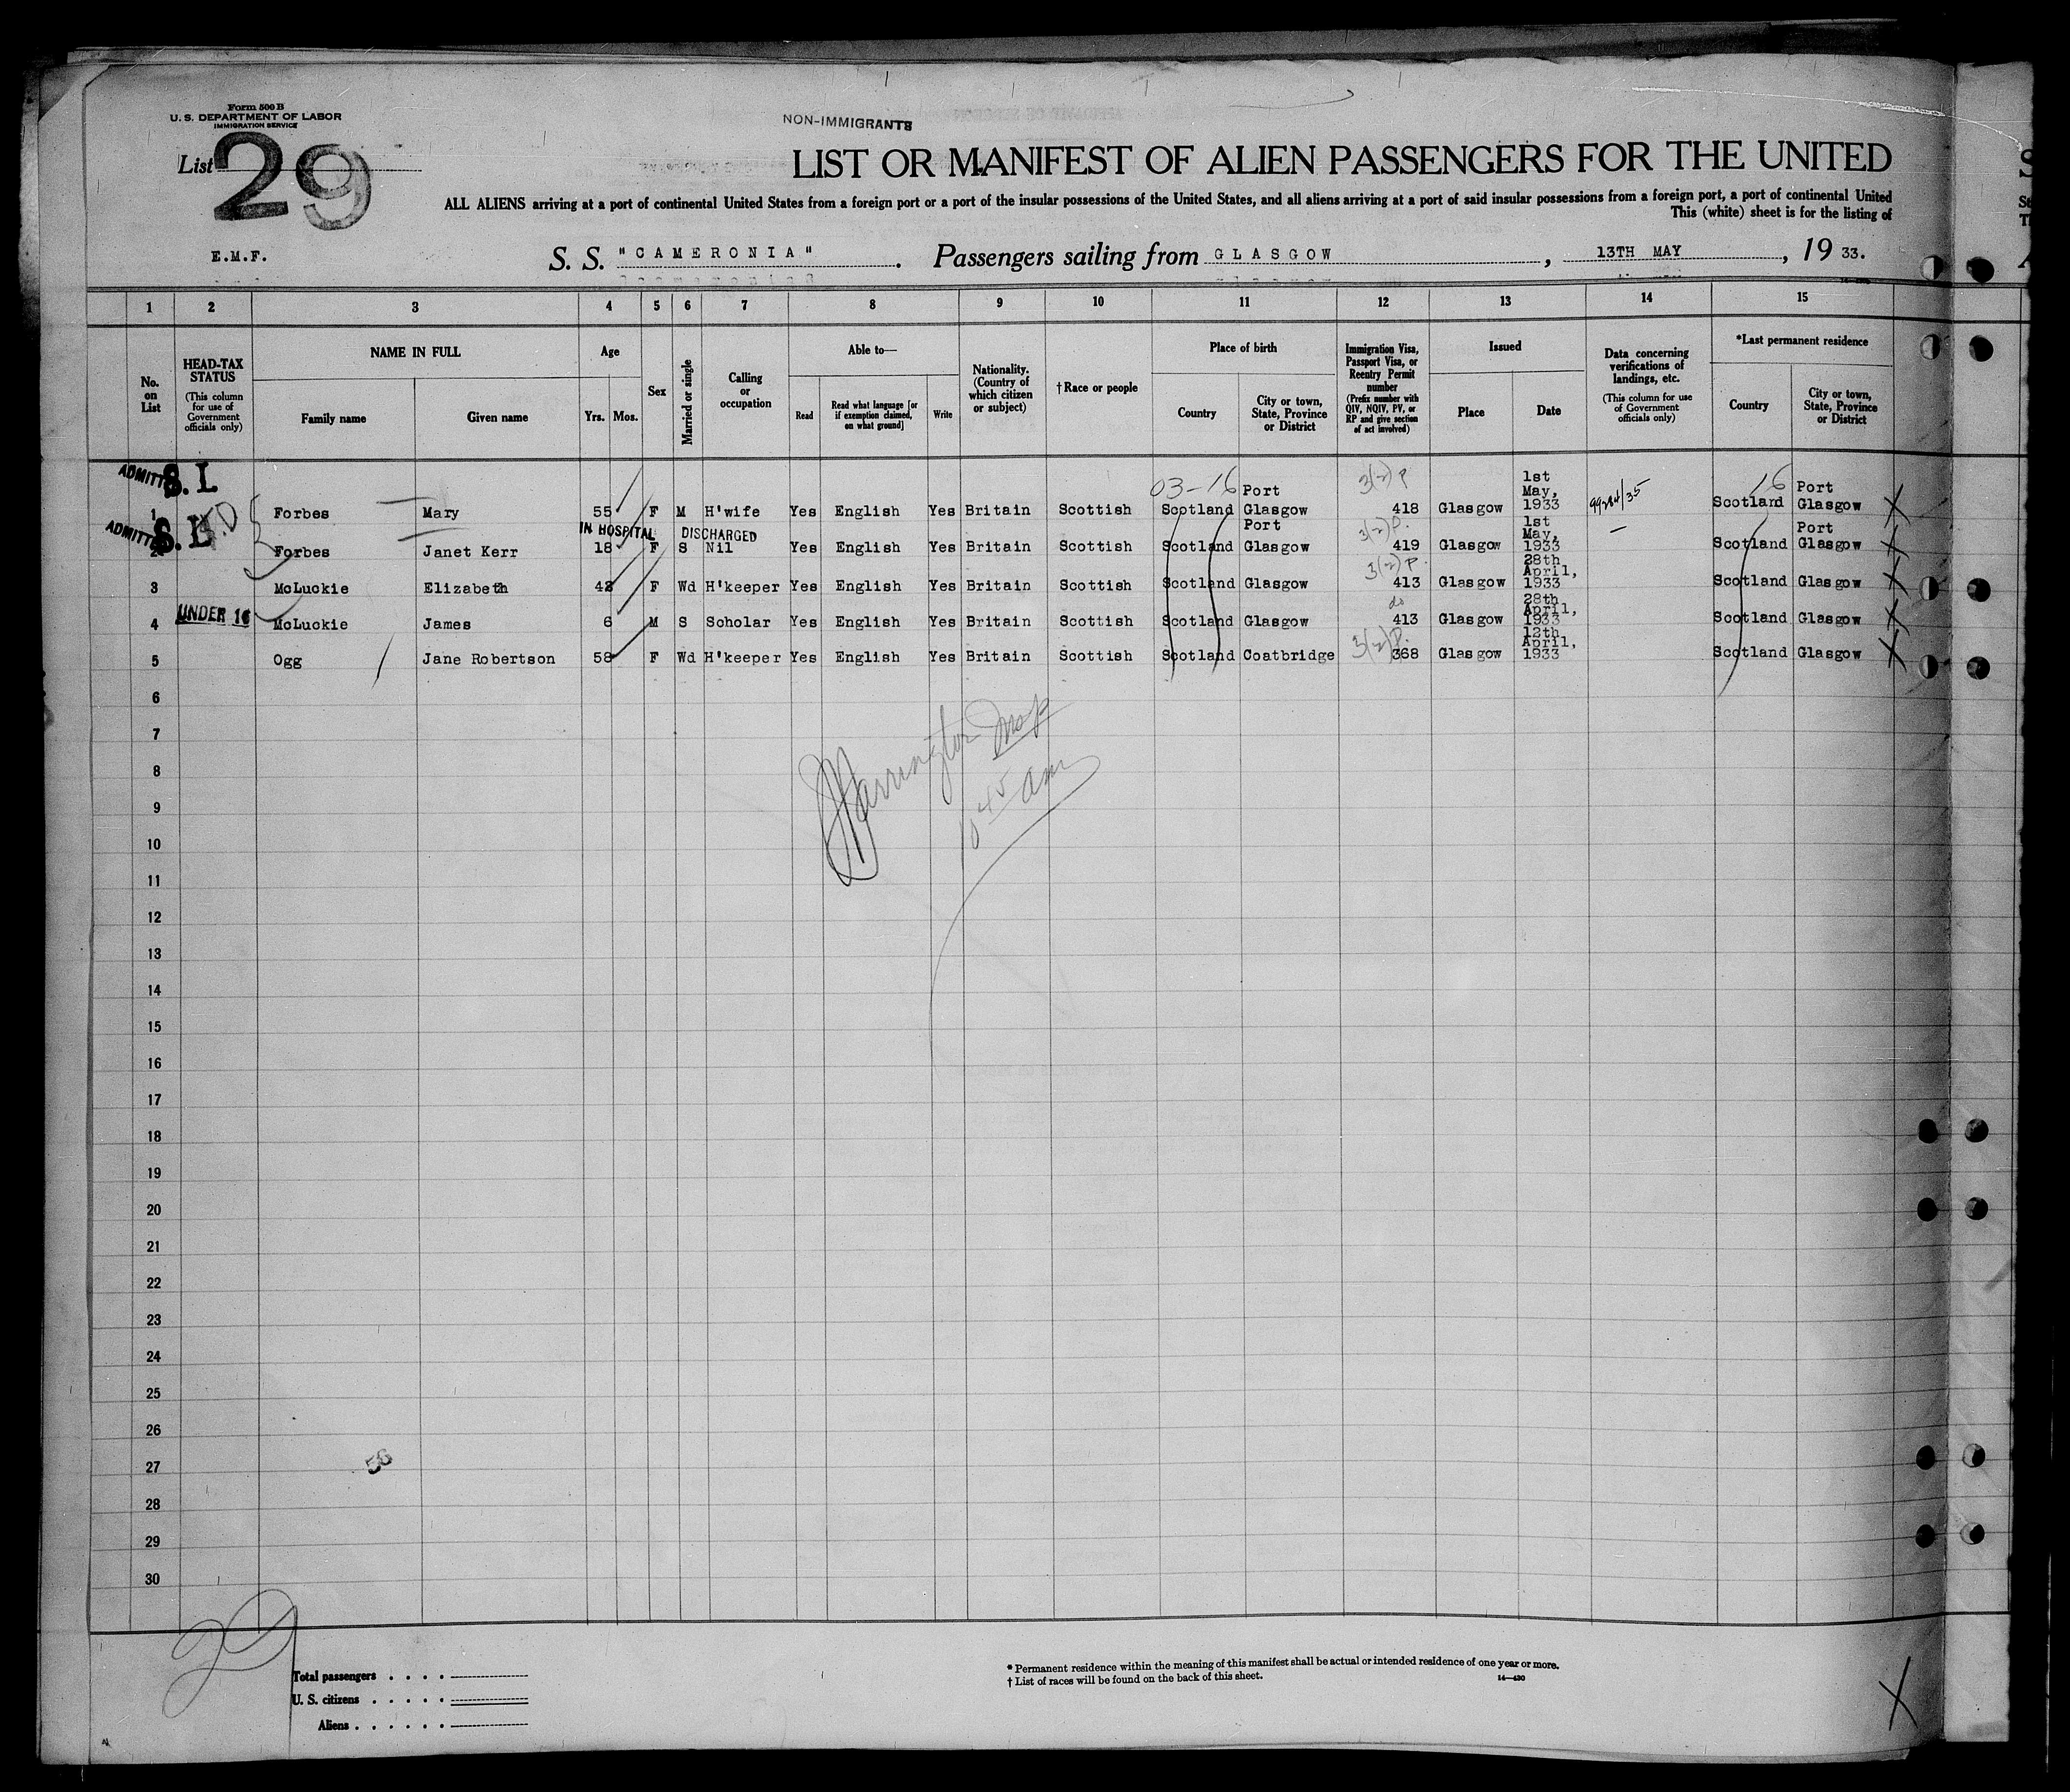 Form 500 B
U. S. DEPARTMENT OF LABOR
IMMIGRATION SERVICE
NON-IMMIGRANTS
List 29
LIST OR MANIFEST OF ALIEN PASSENGERS FOR THE UNITED
ALL ALIENS arriving at a port of continental United States from a foreign port or a port of the insular possessions of the United States, and all aliens arriving at a port of said insular possessions from a foreign port, a port of continental United
This (white) sheet is for the listing of
E.M.F.
S. S. "CAMERONIA". Passengers sailing from GLASGOW, 13TH MAY, 19 33.
1 2 3 4 5 6 7 8 9 10 11 12 13 14 15
No. on List
HEAD-TAX STATUS (This column for use of Government officials only)
NAME IN FULL
Family name Given name
Age
Yrs. Mos.
Sex
Married or single
Calling or occupation
Able to—
Read
Read what language [or if exemption claimed, on what ground]
Write
Nationality. (Country of which citizen or subject)
†Race or people
Place of birth
Country
City or town, State, Province or District
Immigration Visa, Passport Visa, or Reentry Permit number (Prefix number with QIV, NQIV, PV, or RP and give section of act involved)
Issued
Place Date
Data concerning verifications of landings, etc. (This column for use of Government officials only)
*Last permanent residence
Country
City or town, State, Province or District
ADMITTED S. I. 03-16 3(2) P 16
1 Forbes Mary 55 F M H'wife Yes English Yes Britain Scottish Scotland Port Glasgow 418 Glasgow 1st May, 1933 99284/35 Scotland Port Glasgow X
ADMITTED S. I. IN HOSPITAL DISCHARGED 3(2) P.
2 Forbes Janet Kerr 18 F S Nil Yes English Yes Britain Scottish Scotland Port Glasgow 419 Glasgow 1st May, 1933 — Scotland Port Glasgow X
3(2) P.
3 McLuckie Elizabeth 42 F Wd H'keeper Yes English Yes Britain Scottish Scotland Glasgow 413 Glasgow 28th April, 1933 Scotland Glasgow X
UNDER 16 do
4 McLuckie James 6 M S Scholar Yes English Yes Britain Scottish Scotland Glasgow 413 Glasgow 28th April, 1933 Scotland Glasgow X
3(2) P.
5 Ogg Jane Robertson 58 F Wd H'keeper Yes English Yes Britain Scottish Scotland Coatbridge 368 Glasgow 12th April, 1933 Scotland Glasgow X
6
7
8
9
10
11
12
13
14
15
16
17
18
19
20
21
22
23
24
25
26
27
28
29
30
Harrington Insp
10 45 am
56
29
Total passengers
U. S. citizens
Aliens
* Permanent residence within the meaning of this manifest shall be actual or intended residence of one year or more.
† List of races will be found on the back of this sheet.
14—430
X